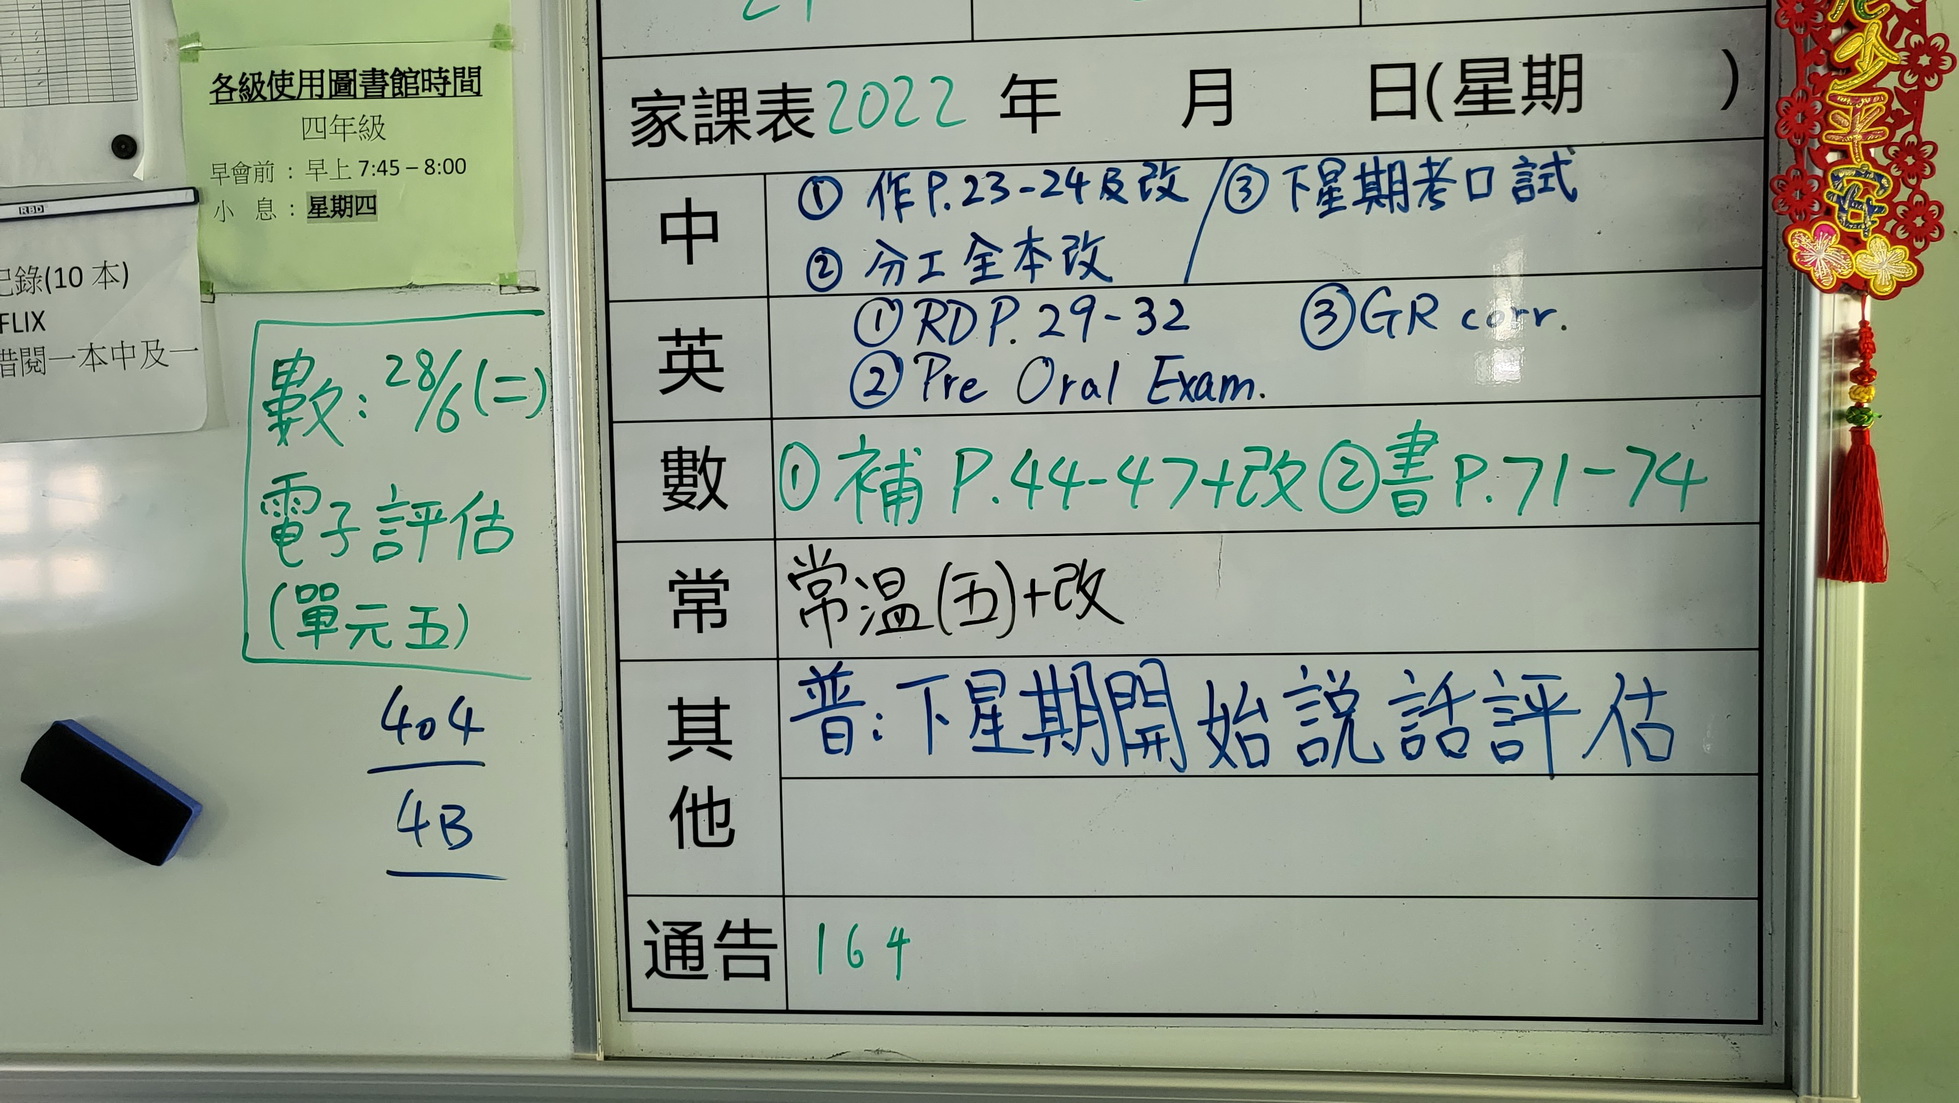 各級使用圖書館時間
四年級
早會前：早上 7:45 – 8:00
小息：星期四
RBD
記錄(10 本)
FLIX
借閱一本中及一
數：28/6(二)
電子評估
(單元五)
404
4B
家課表2022 年 月 日(星期 )
中
① 作P.23-24及改 / ③ 下星期考口試
② 分工全本改
英
① RD P.29-32 ③ GR corr.
② Pre Oral Exam.
數
① 補 P.44-47+改 ② 書P.71-74
常
常温(五)+改
其他
普：下星期開始説話評估
通告
164
平安